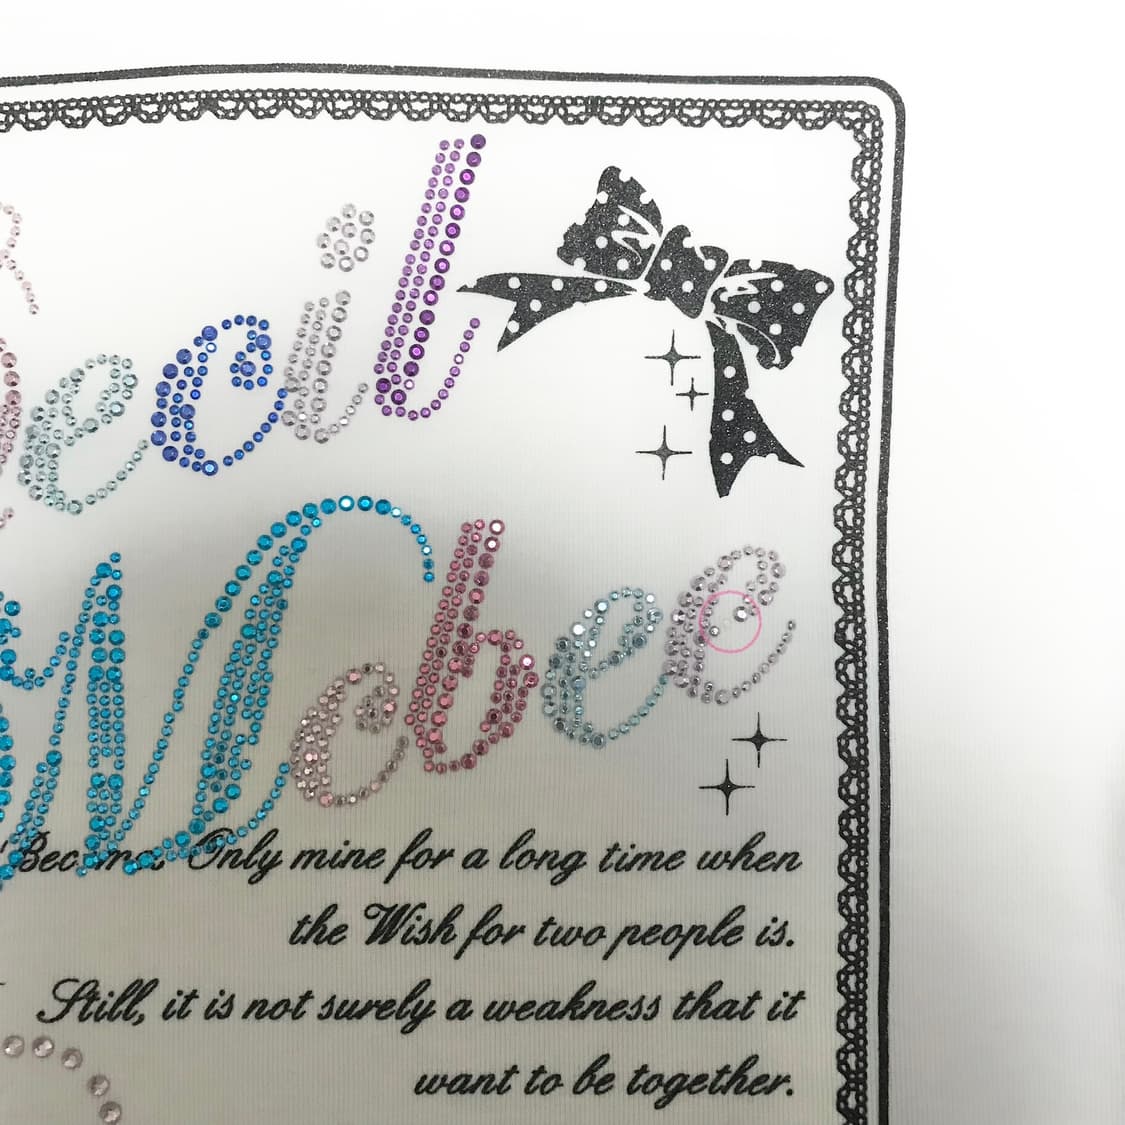 ecil
Mcbee
Become. Only mine for a long time when
the Wish for two people is.
Still, it is not surely a weakness that it
want to be together.